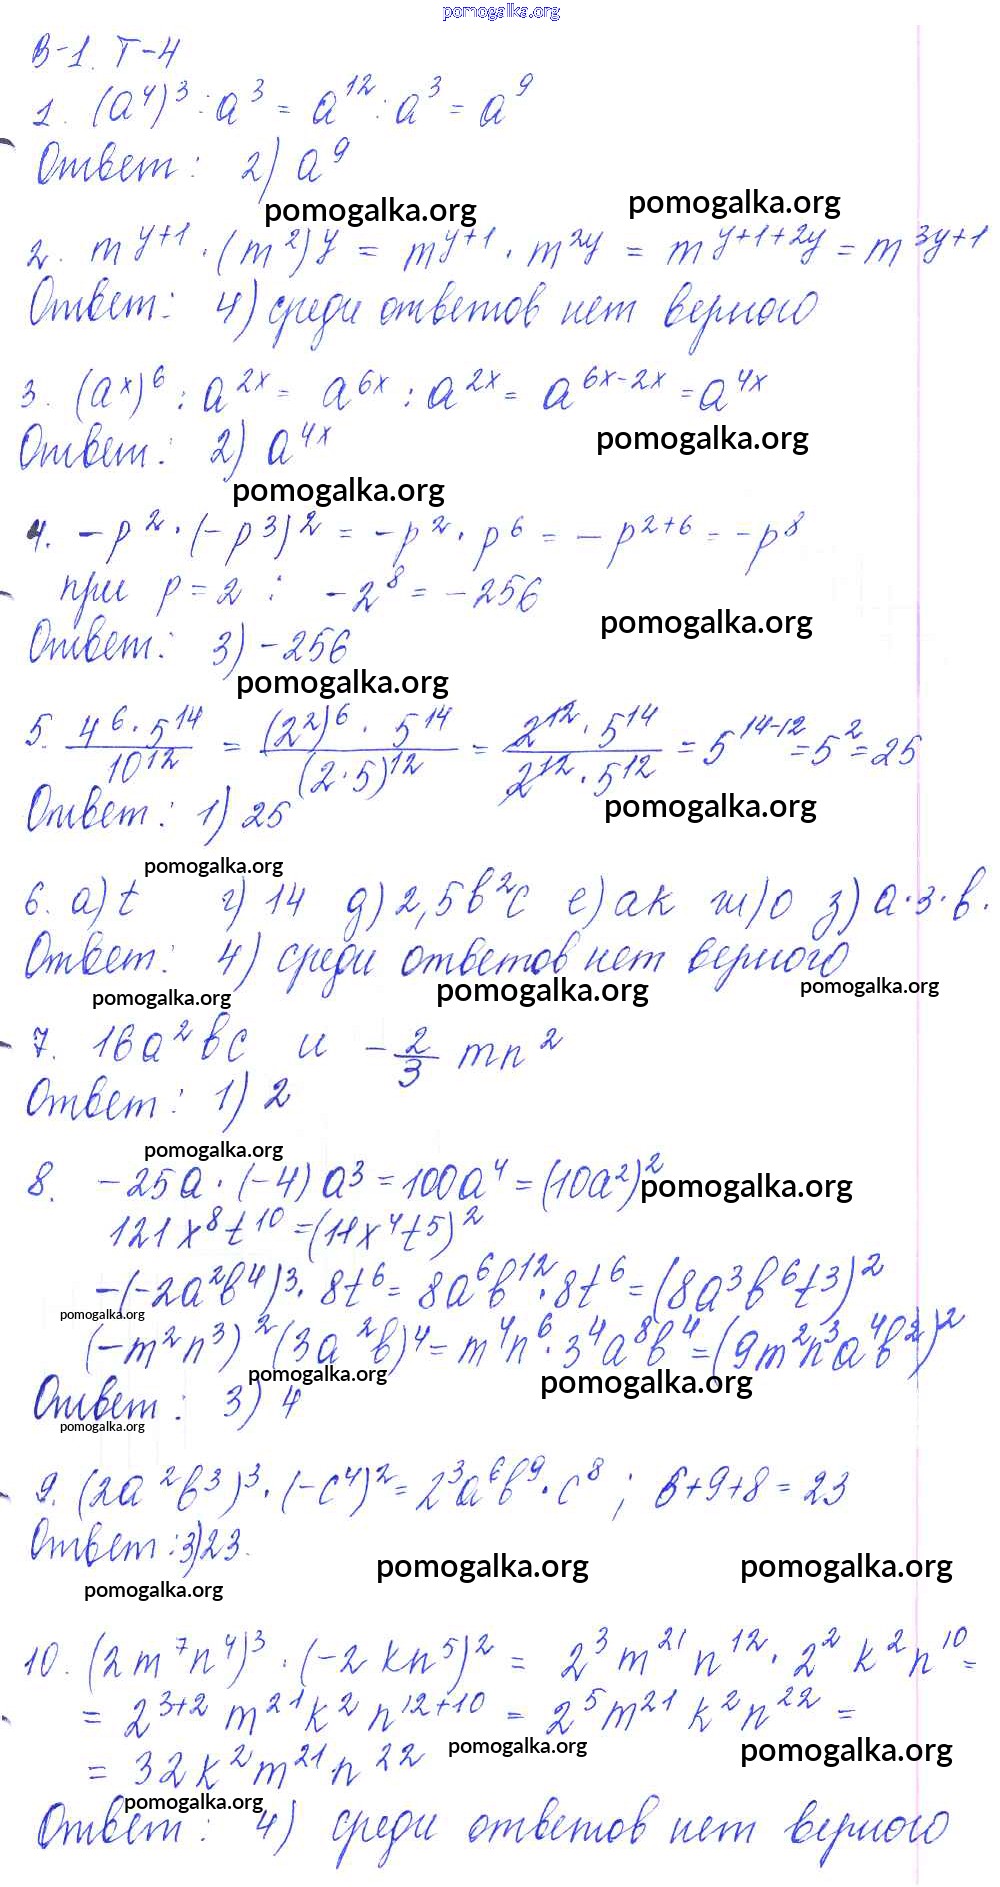 pomogalka.org
В-1. Т-4
1. (a⁴)³ : a³ = a¹² : a³ = a⁹
Ответ: 2) a⁹
pomogalka.org pomogalka.org
2. m^(y+1) · (m²)^y = m^(y+1) · m^(2y) = m^(y+1+2y) = m^(3y+1)
Ответ: 4) среди ответов нет верного
3. (a^x)⁶ : a^(2x) = a^(6x) : a^(2x) = a^(6x-2x) = a^(4x)
Ответ: 2) a^(4x)
pomogalka.org
pomogalka.org
4. -p² · (-p³)² = -p² · p⁶ = -p^(2+6) = -p⁸
при p = 2 : -2⁸ = -256
pomogalka.org
Ответ: 3) -256
pomogalka.org
5. (4⁶ · 5¹⁴)/(10¹²) = ((2²)⁶ · 5¹⁴)/((2·5)¹²) = (2¹² · 5¹⁴)/(2¹² · 5¹²) = 5^(14-12) = 5² = 25
Ответ: 1) 25
pomogalka.org
pomogalka.org
6. а) t г) 14 д) 2,5b²c е) ak ж) 0 з) a·3·b.
Ответ: 4) среди ответов нет верного
pomogalka.org pomogalka.org pomogalka.org
7. 16a²bc и -2/3 mn²
Ответ: 1) 2
pomogalka.org
8. -25a · (-4) a³ = 100a⁴ = (10a²)²
pomogalka.org
121x⁸t¹⁰ = (11x⁴t⁵)²
-(-2a²b⁴)³ · 8t⁶ = 8a⁶b¹² · 8t⁶ = (8a³b⁶t³)²
pomogalka.org
(-m²n³)² (3a²b)⁴ = m⁴n⁶ · 3⁴a⁸b⁴ = (9m²n³a⁴b²)²
pomogalka.org pomogalka.org
Ответ: 3) 4
pomogalka.org
9. (2a²b³)³ · (-c⁴)² = 2³a⁶b⁹ · c⁸ ; 6+9+8 = 23
Ответ: 3) 23.
pomogalka.org pomogalka.org
pomogalka.org
10. (2m⁷n⁴)³ · (-2kn⁵)² = 2³m²¹n¹² · 2²k²n¹⁰ =
= 2^(3+2) m²¹k²n^(12+10) = 2⁵m²¹k²n²² =
pomogalka.org pomogalka.org
= 32k²m²¹n²²
pomogalka.org
Ответ: 4) среди ответов нет верного